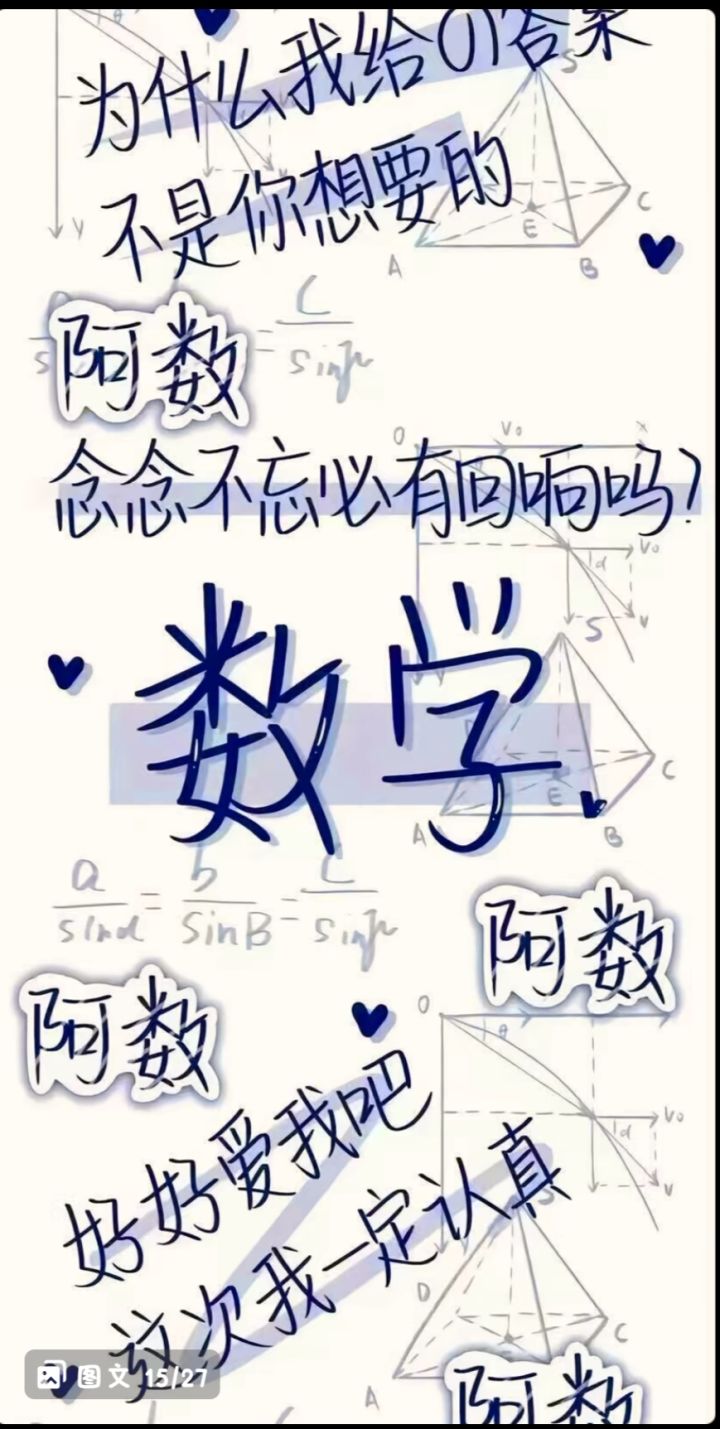 为什么我给の答案
不是你想要的
阿数
念念不忘必有回响吗?
数学
阿数
阿数
好好爱我吧
这次我一定认真
阿数
图文 15/27
θ
y
S
A
B
C
E
= C / sin
O V₀ x
V₀
α
V
S
C
E
A
B
a / sinα = b / sinB = C / sin
O
θ
V₀
α
V
S
D
C
A